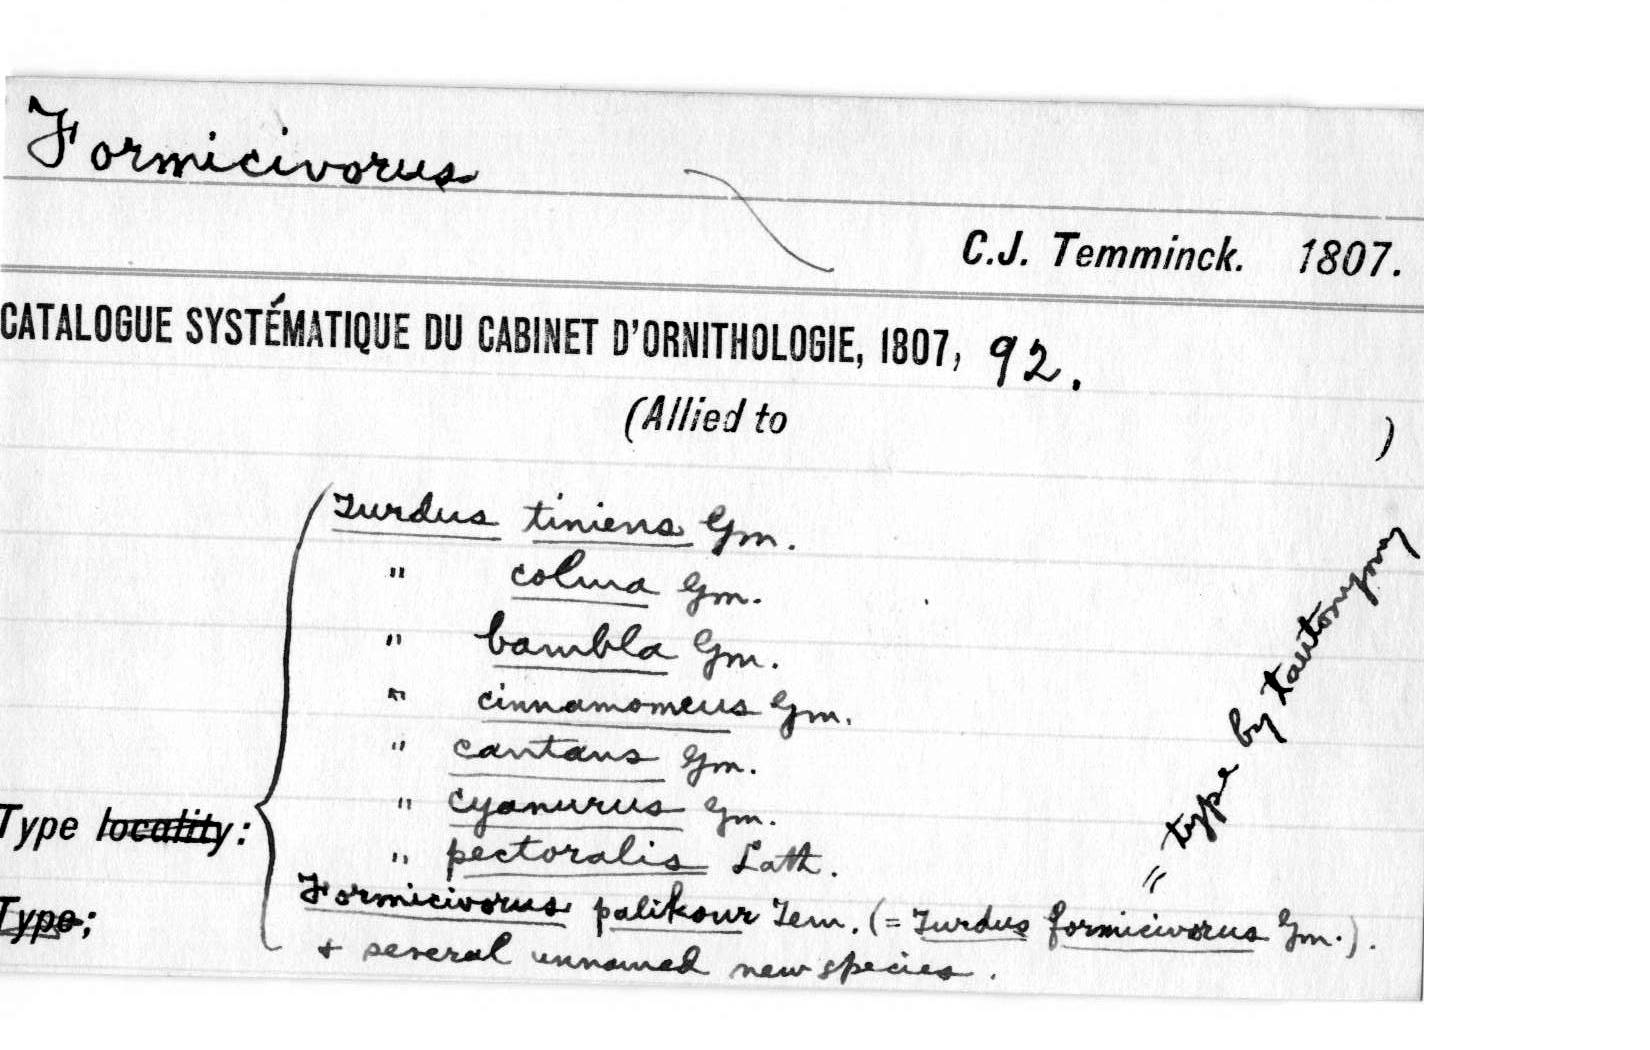 Formicivorus
C.J. Temminck. 1807.
CATALOGUE SYSTÉMATIQUE DU CABINET D'ORNITHOLOGIE, 1807, 92.
(Allied to )
Turdus tiniens Gm.
" colma Gm.
" bambla Gm.
" cinnamomeus Gm.
" cantans Gm.
" cyanurus Gm.
Type locality:
" pectoralis Lath.
Formicivorus palikour Tem. (= Turdus formicivorus Gm.).
Type;
+ several unnamed new species.
" type by tautonymy